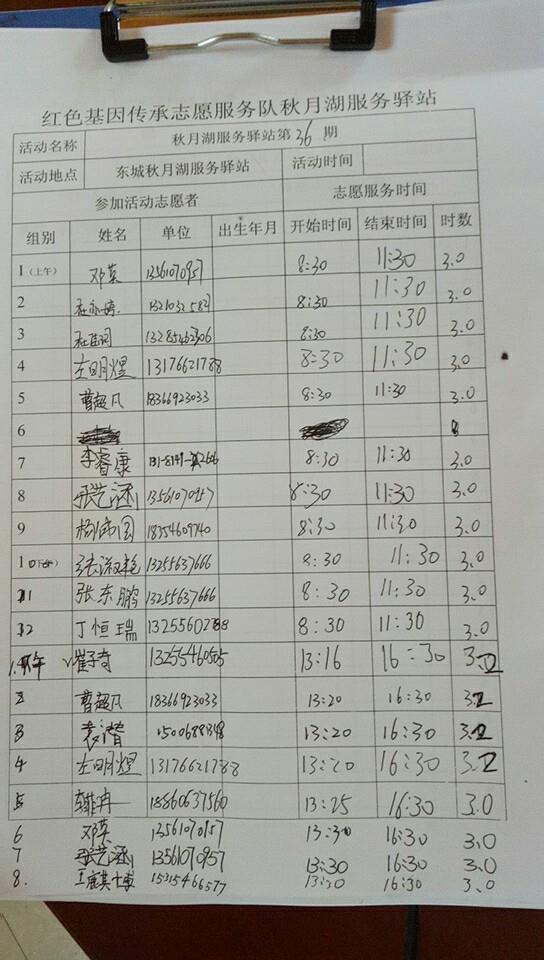 红色基因传承志愿服务队秋月湖服务驿站
活动名称 秋月湖服务驿站第36期
活动地点 东城秋月湖服务驿站 活动时间
参加活动志愿者 志愿服务时间
组别 姓名 单位 出生年月 开始时间 结束时间 时数
1(上午) 邓英 13561070957 8:30 11:30 3.0
2 8:30 11:30 3.0
3 13285462306 8:30 11:30 3.0
4 左明煜 13176621788 8:30 11:30 3.0
5 曹超凡 18366923033 8:30 11:30 3.0
6
7 李睿康 8:30 11:30 3.0
8 张艺涵 13561070957 8:30 11:30 3.0
9 杨伟国 18354609740 8:30 11:30 3.0
10 张淑艳 13255637666 8:30 11:30 3.0
11 张东鹏 13255637666 8:30 11:30 3.0
12 丁恒瑞 13255602788 8:30 11:30 3.0
1.下午 崔子奇 13255460505 13:16 16:30 3.2
2 曹超凡 18366923033 13:20 16:30 3.2
3 袁潜 13:20 16:30 3.2
4 左明煜 13176621788 13:20 16:30 3.2
5 18860637560 13:25 16:30 3.0
6 邓英 13561070957 13:30 16:30 3.0
7 张艺涵 13561070957 13:30 16:30 3.0
8. 15315466577 13:30 16:30 3.0